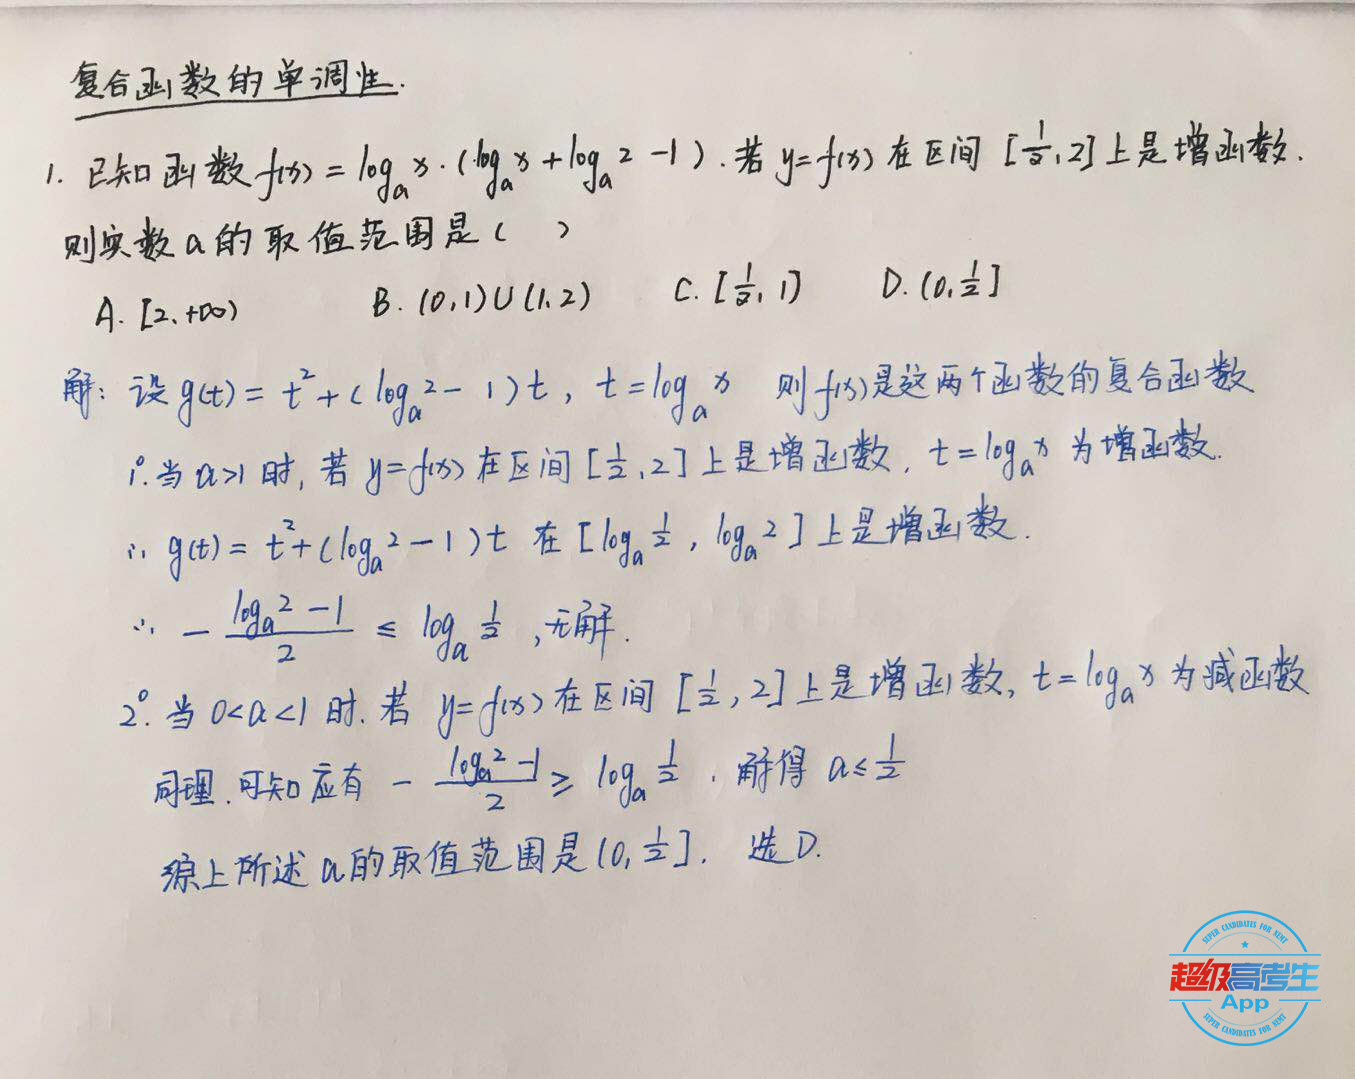 复合函数的单调性.
1. 已知函数f(x)=logₐx·(logₐx+logₐ2-1).若y=f(x)在区间[1/2,2]上是增函数.
则实数a的取值范围是( )
A. [2,+∞) B. (0,1)∪(1,2) C. [1/2,1) D. (0,1/2]
解:设g(t)=t²+(logₐ2-1)t, t=logₐx 则f(x)是这两个函数的复合函数
1°.当a>1时,若y=f(x)在区间[1/2,2]上是增函数,t=logₐx为增函数.
∴g(t)=t²+(logₐ2-1)t在[logₐ1/2,logₐ2]上是增函数.
∴-(logₐ2-1)/2≤logₐ1/2,无解.
2°.当0<a<1时.若y=f(x)在区间[1/2,2]上是增函数,t=logₐx为减函数
同理.可知应有-(logₐ2-1)/2≥logₐ1/2.解得a≤1/2
综上所述a的取值范围是(0,1/2].选D.
SUPER CANDIDATES FOR NEMT
超级高考生
App
SUPER CANDIDATES FOR NEMT